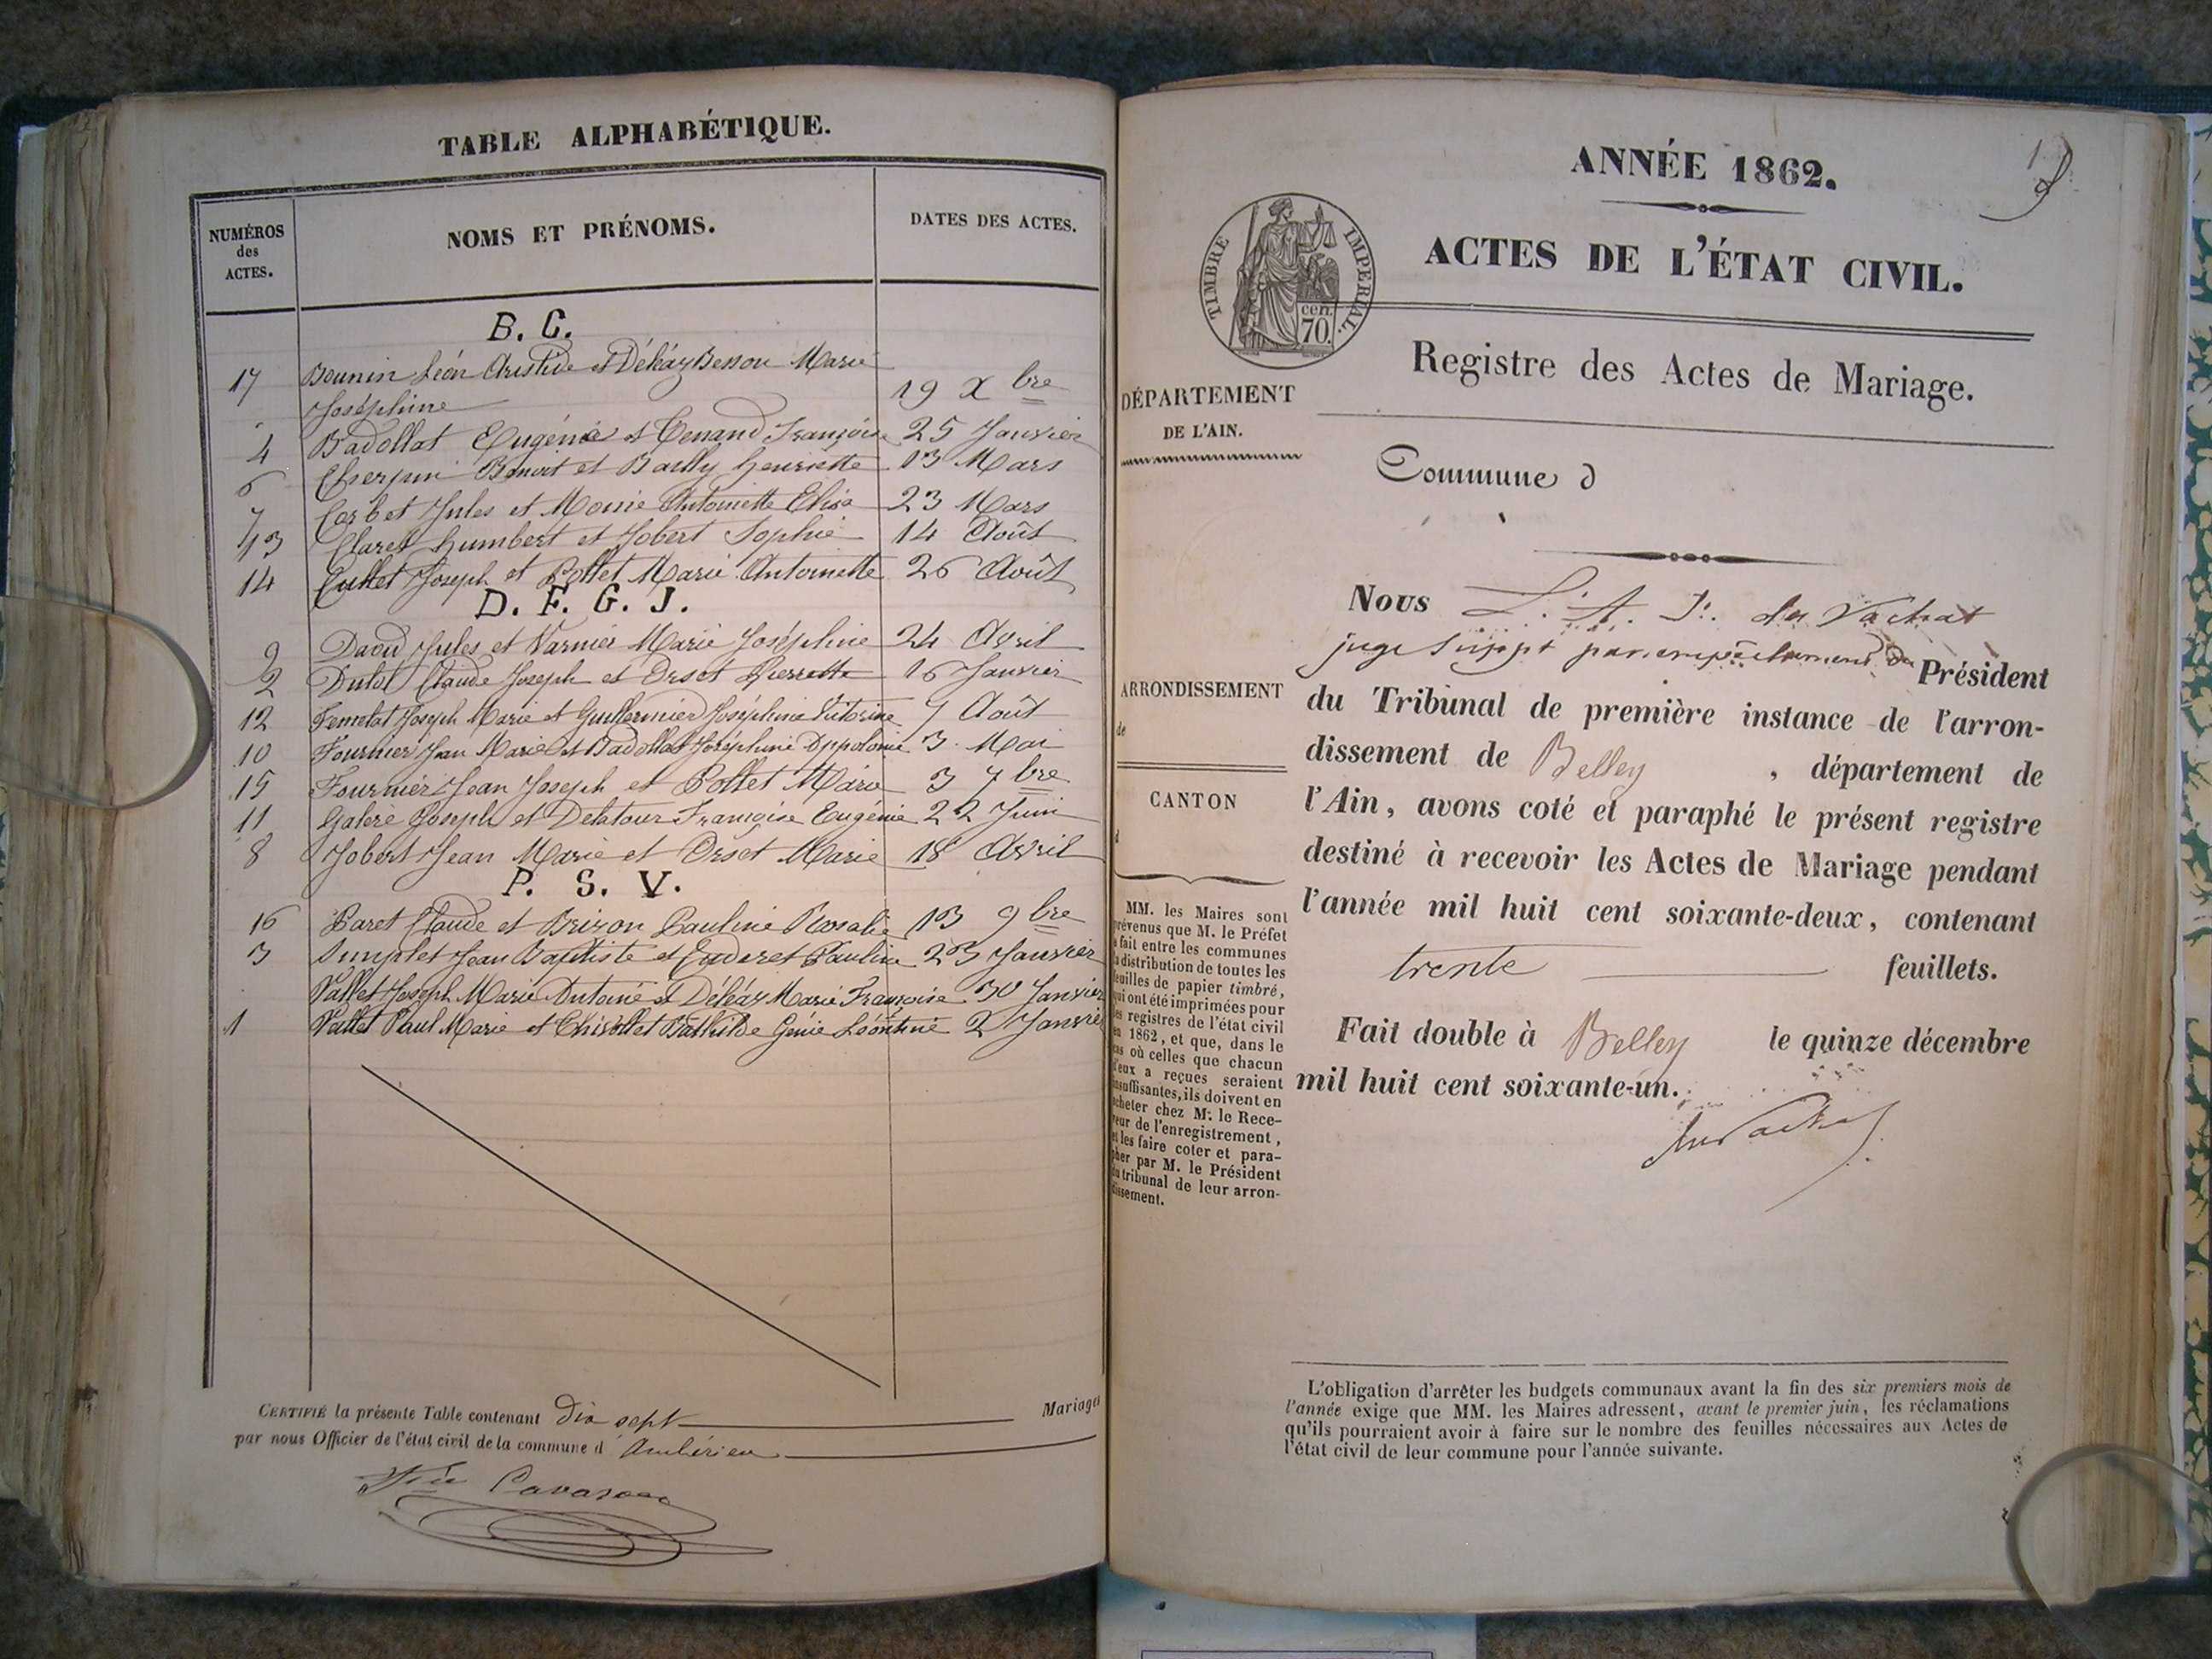 TABLE ALPHABÉTIQUE.
NUMÉROS
des
ACTES.
NOMS ET PRÉNOMS.
DATES DES ACTES.
B. C.
17 Bounin Léon Aristide et Déléaz Besson Marie
Joséphine 19 Xbre
4 Badollat Eugénie et Tenand Françoise 25 Janvier
6 Cherpin Benoit et Bailly henriette 13 Mars
7 Corbet Jules et Monie Antoinette Elisa 23 Mars
13 Claret humbert et Jobert Sophie 14 Août
14 Cullet Joseph et Pottet Marie Antoinette 26 Août
D. F. G. J.
9 David Jules et Varnier Marie Joséphine 24 Avril
2 Dutol Claude Joseph et Orset Pierrette 16 Janvier
12 Femelat Joseph Marie et Guillermier Joséphine Victorine 7 Août
10 Fournier Jean Marie et Badollat Joséphine Appolonie 3 Mai
15 Fournier Jean Joseph et Pottet Marie 3 7bre
11 Galère Joseph et Delatour Françoise Eugénie 22 Juin
8 Jobert Jean Marie et Orset Marie 18 Avril
P. S. V.
16 Paret Claude et Brizon Pauline Rosalie 13 9bre
3 Simplet Jean Baptiste et Pauline 23 Janvier
Vallet Joseph Marie Antoine et Déléaz Marie Françoise 30 Janvier
1 Vallet Paul Marie et Bathilde Génie Léontine 2 Janvier
CERTIFIÉ la présente Table contenant dix sept Mariages
par nous Officier de l'état civil de la commune d'Ambérieu
ANNÉE 1862.
1
TIMBRE IMPERIAL.
cen.
70.
ACTES DE L'ÉTAT CIVIL.
Registre des Actes de Mariage.
DÉPARTEMENT
DE L'AIN.
Commune d
ARRONDISSEMENT
de
CANTON
d
MM. les Maires sont
prévenus que M. le Préfet
a fait entre les communes
la distribution de toutes les
feuilles de papier timbré,
qui ont été imprimées pour
les registres de l'état civil
en 1862, et que, dans le
cas où celles que chacun
d'eux a reçues seraient
insuffisantes, ils doivent en
acheter chez M. le Rece-
veur de l'enregistrement,
et les faire coter et para-
pher par M. le Président
du tribunal de leur arron-
dissement.
Nous L. A. J. du Vachat
juge suppt par empêchement du Président
du Tribunal de première instance de l'arron-
dissement de Belley, département de
l'Ain, avons coté et paraphé le présent registre
destiné à recevoir les Actes de Mariage pendant
l'année mil huit cent soixante-deux, contenant
trente feuillets.
Fait double à Belley le quinze décembre
mil huit cent soixante-un.
du Vachat
L'obligation d'arrêter les budgets communaux avant la fin des six premiers mois de
l'année exige que MM. les Maires adressent, avant le premier juin, les réclamations
qu'ils pourraient avoir à faire sur le nombre des feuilles nécessaires aux Actes de
l'état civil de leur commune pour l'année suivante.